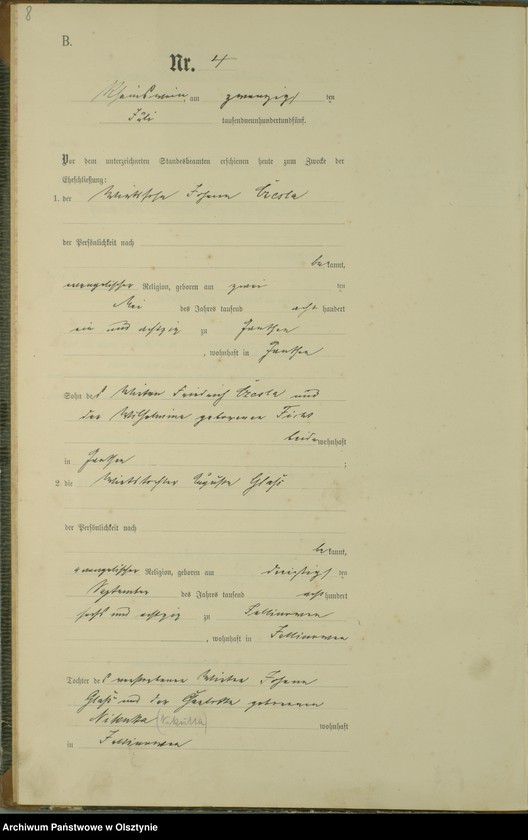 8
B.
Nr. 4
Rheinswein, am zwanzigsten
Juli tausendneunhundertundfünf.
Vor dem unterzeichneten Standesbeamten erschienen heute zum Zwecke der
Eheschließung:
1. der Wirtssohn Johann Czesla
der Persönlichkeit nach
bekannt,
evangelischer Religion, geboren am zwei ten
Mai des Jahres tausend acht hundert
ein und achtzig zu
, wohnhaft in
Sohn des Wirten Friedrich Czesla und
der Wilhelmine geborenen
beide wohnhaft
in ;
2. die Wirtstochter Auguste Glaß
der Persönlichkeit nach
bekannt,
evangelischer Religion, geboren am dreißigsten
September des Jahres tausend acht hundert
sechs und achtzig zu
, wohnhaft in
Tochter des verstorbenen Wirten Johann
Glaß und der geborenen
Nikutta (Nikutta)
wohnhaft
in
Archiwum Państwowe w Olsztynie